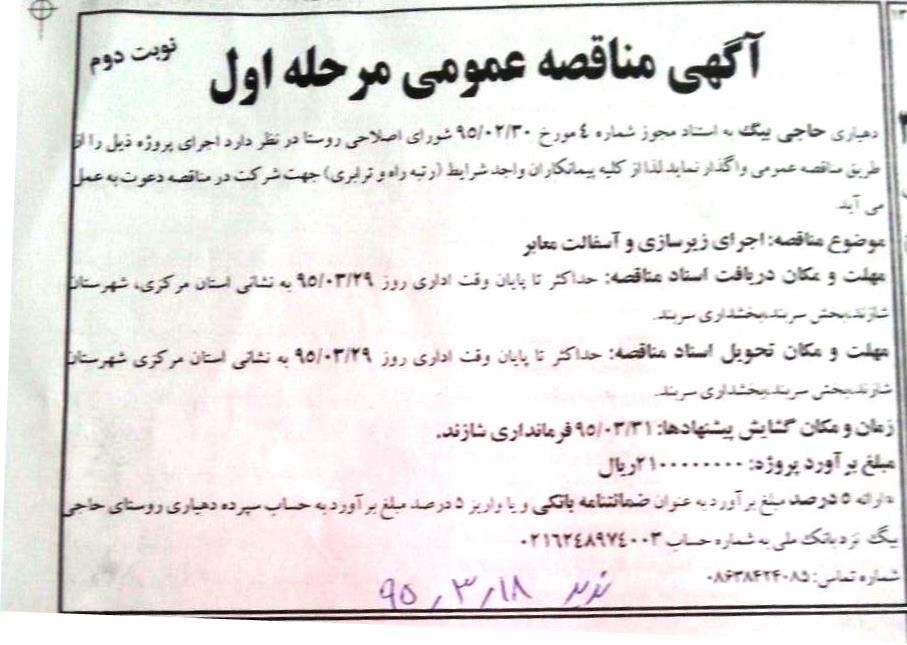 نوبت دوم
آگهی مناقصه عمومی مرحله اول
دهیاری حاجی بیگ به استناد مجوز شماره ٤ مورخ ۹۵/۰۲/۳۰ شورای اصلاحی روستا در نظر دارد اجرای پروژه ذیل را از
طریق مناقصه عمومی واگذار نماید لذا از کلیه پیمانکاران واجد شرایط (رتبه راه و ترابری) جهت شرکت در مناقصه دعوت به عمل
می آید.
موضوع مناقصه: اجرای زیرسازی و آسفالت معابر
مهلت و مکان دریافت اسناد مناقصه: حداکثر تا پایان وقت اداری روز ۹۵/۰۳/۲۹ به نشانی استان مرکزی، شهرستان
شازند،بخش سربند،بخشداری سربند.
مهلت و مکان تحویل اسناد مناقصه: حداکثر تا پایان وقت اداری روز ۹۵/۰۳/۲۹ به نشانی استان مرکزی شهرستان
شازند،بخش سربند،بخشداری سربند.
زمان و مکان گشایش پیشنهادها: ۹۵/۰۳/۳۱ فرمانداری شازند.
مبلغ برآورد پروژه: ۲۱۰۰۰۰۰۰۰۰ریال
*ارائه ۵ درصد مبلغ برآورد به عنوان ضمانتنامه بانکی و یا واریز ۵ درصد مبلغ برآورد به حساب سپرده دهیاری روستای حاجی
بیگ نزد بانک ملی به شماره حساب ۰۲۱٦۲٤۸۹۷٤۰۰۳
شماره تماس: ۰۸۶۳۸۴۲۴۰۸۵
۹۵٫۳٫۱۸